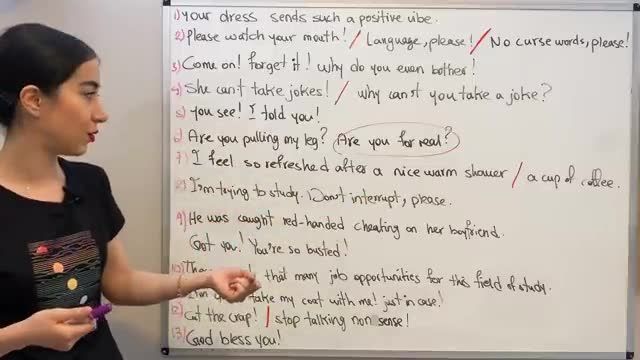 1) your dress sends such a positive vibe.
2) Please watch your mouth! / Language, please! / No curse words, please!
3) Come on! forget it! why do you even bother!
4) She can't take jokes! / why can't you take a joke?
5) you see! I told you!
6) Are you pulling my leg? Are you for real?
7) I feel so refreshed after a nice warm shower / a cup of coffee.
8) I'm trying to study. Don't interrupt, please.
9) He was caught red-handed cheating on her boyfriend.
Got you! You're so busted!
10) that many job opportunities for this field of study.
take my coat with me! just in case!
12) Cut the crap! / stop talking non sense!
13) God bless you!